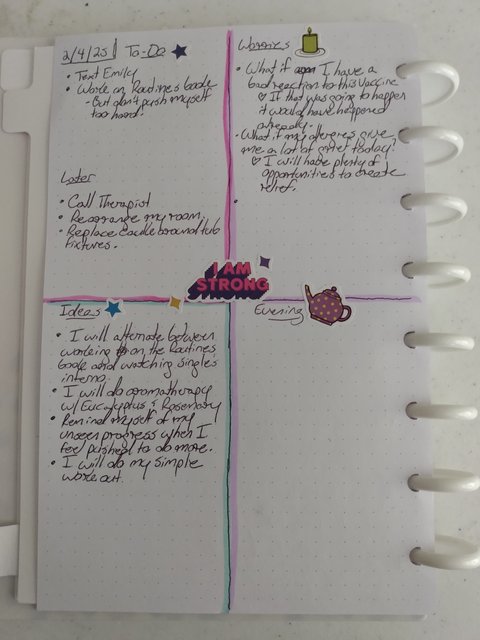 2/4/25 | To-Do
• Text Emily
• Work on Routines book
- But don't push myself
too hard.
Later
• Call Therapist
• Rearrange my room.
• Replace caulk around tub
fixtures.
Worries
• What if I have a
bad reaction to this vaccine
♡ If that was going to happen
it would have happened
already.
• What if my allergies give
me a lot of grief today?
♡ I will have plenty of
opportunities to create
relief.
I AM
STRONG
Ideas
• I will alternate between
working on the Routines
book and watching singles
inferno.
• I will do aromatherapy
w/ Eucalyptus & Rosemary
• Remind myself of my
unseen progress when I
feel pushed to do more.
• I will do my simple
work out.
Evening